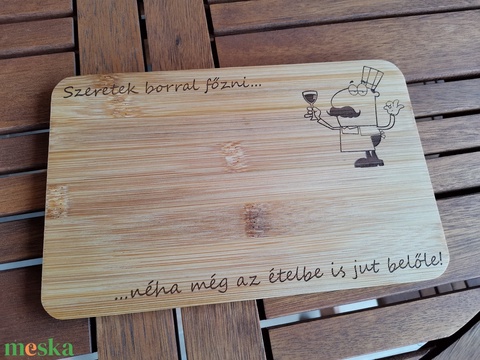 Szeretek borral főzni...
...néha még az ételbe is jut belőle!
meska